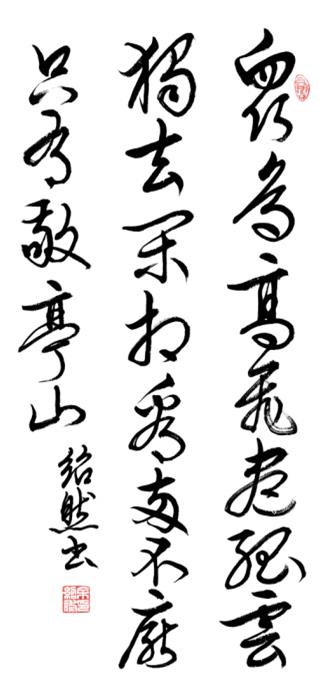 眾鳥高飛盡孤雲
獨去閑相看兩不厭
只有敬亭山
紹然書